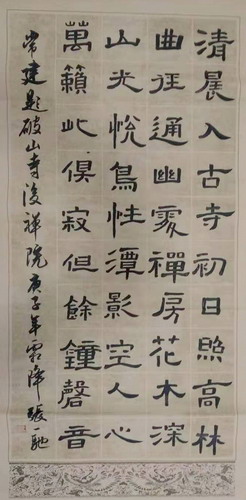 清晨入古寺初日照高林
曲径通幽处禅房花木深
山光悦鳥性潭影空人心
萬籟此俱寂但餘鐘磬音
常建題破山寺後禪院庚子年霜降張一馳